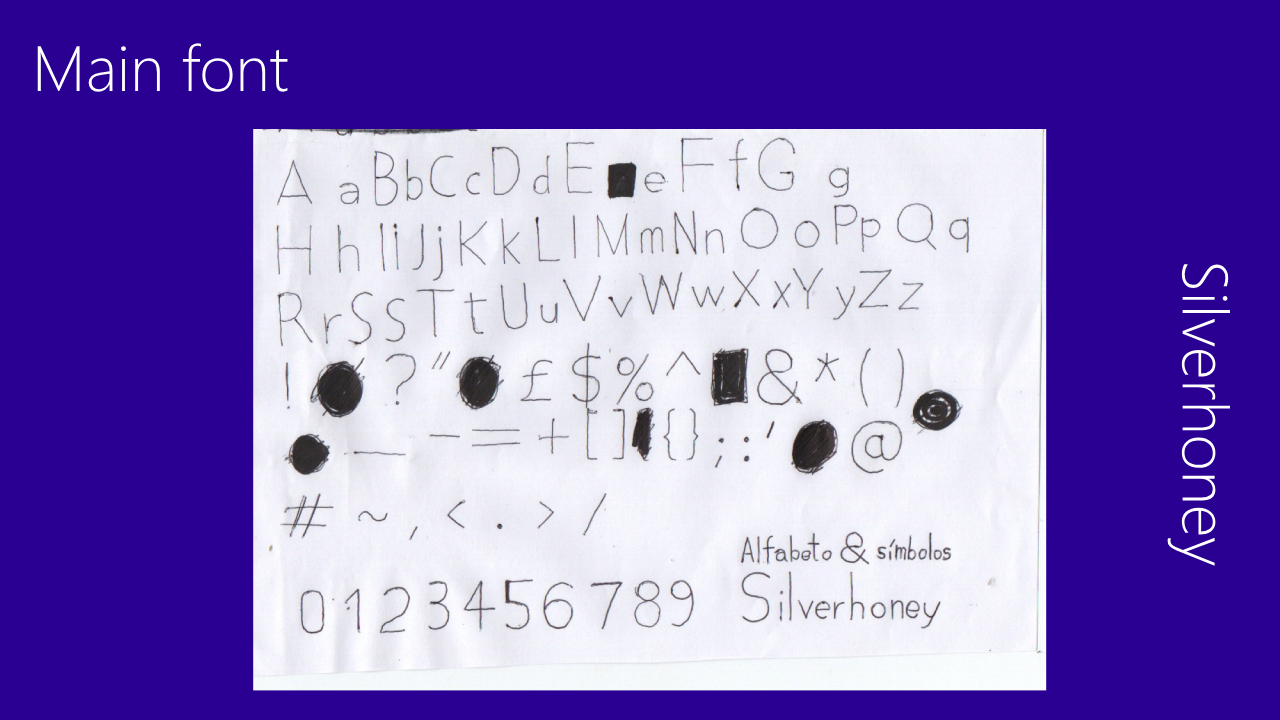 Main font
A a B b C c D d E e F f G g
H h I i J j K k L l M m N n O o P p Q q
R r S s T t U u V v W w X x Y y Z z
! ? " £ $ % ^ & * ( )
_ - = + [ ] { } ; : ' @
# ~ , < . > /
Alfabeto & símbolos
0 1 2 3 4 5 6 7 8 9
Silverhoney
Silverhoney